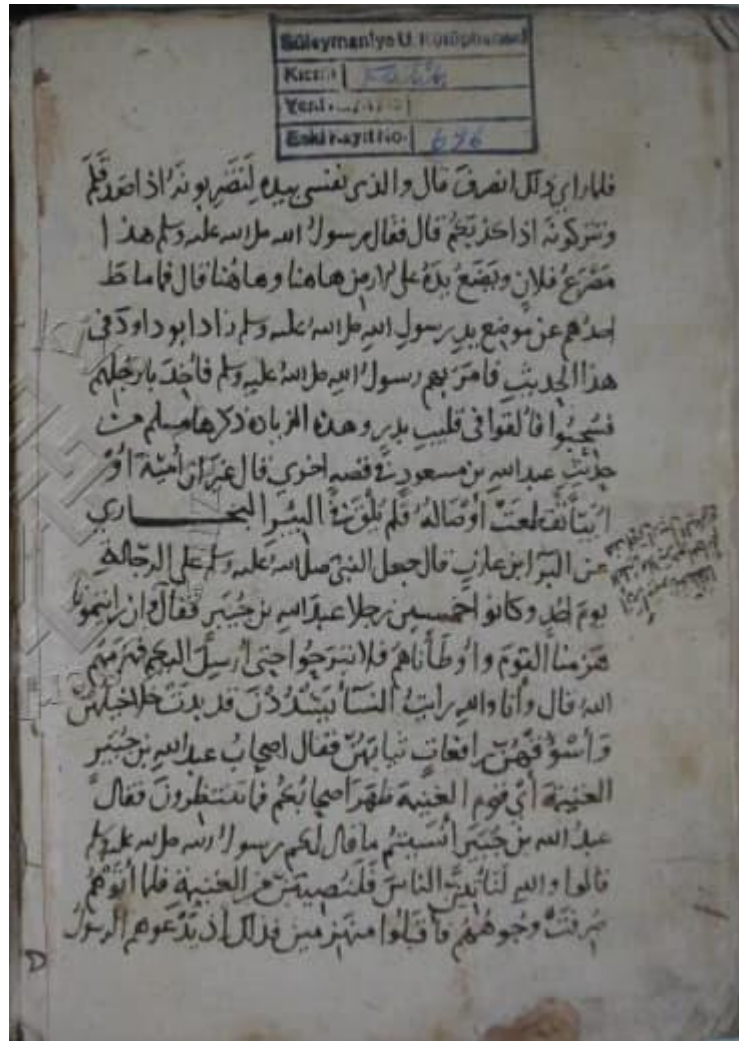 Süleymaniye U. Kütüphanesi
Kısmı Fatih
Yeni Kayıt No.
Eski Kayıt No. 696
فلما راى ذلك انصرف قال والذى نفسى بيده لتضربونه اذا صدقكم
وتتركونه اذا كذبكم قال فقال رسول الله صلى الله عليه وسلم هذا
مصرع فلان ويضع يده على الارض هاهنا وهاهنا قال فما ماط
احدهم عن موضع يد رسول الله صلى الله عليه وسلم زاد ابو داود فى
هذا الحديث فامر بهم رسول الله صلى الله عليه وسلم فاخذ بارجلهم
فسحبوا فالقوا فى قليب بدر وهذه الزيادة ذكرها مسلم من
حديث عبد الله بن مسعود فى قصه اخرى قال غير ان امية او
ابيا تقطعت اوصاله فلم يلق فى البئر البخاري
عن البرا ابن عازب قال جعل النبى صلى الله عليه وسلم على الرجالة
يوم احد وكانوا خمسين رجلا عبد الله بن جبير فقال وان رايتمونا
هزمنا القوم واوطأناهم فلا تبرحوا حتى ارسل اليكم فهزمهم
الله قال وأنا والله رأيت النسا يشددن قد بدت خلاخيلهن
وأسوقهن رافعات ثيابهن فقال اصحاب عبد الله بن جبير
الغنيمة أي قوم الغنيمة ظهر اصحابكم فما تنتظرون فقال
عبد الله بن جبير أنسيتم ما قال لكم رسول الله صلى الله عليه وسلم
قالوا والله لنأتين الناس فلنصيبن من الغنيمة فلما أتوهم
صرفت وجوههم فأقبلوا منهزمين فذلك اذ يدعوهم الرسول